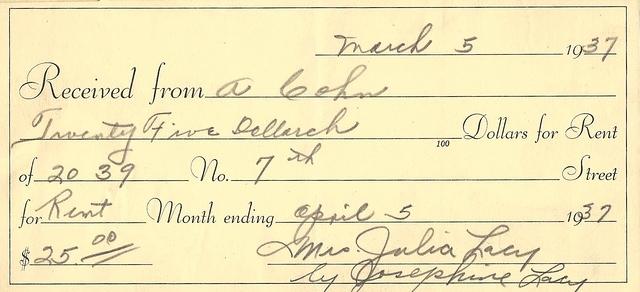 March 5 1937
Received from A Cohn
Twenty Five Dollarch 100 Dollars for Rent
of 20 39 No. 7th Street
for Rent Month ending April 5 1937
$25.00 Mrs. Julia Lacy
by Josephine Lacy